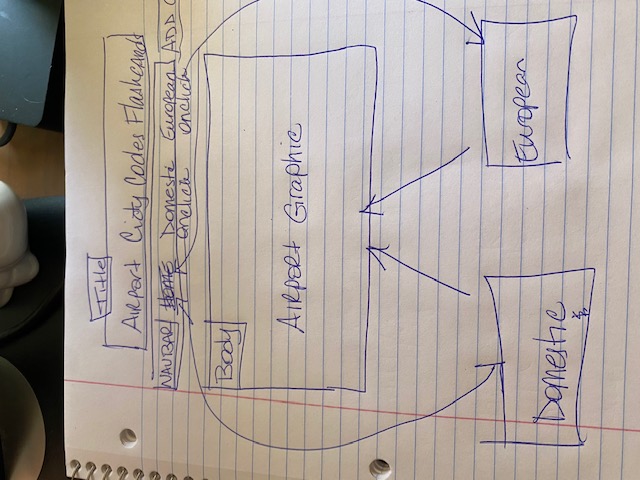 Title
AIRPORT City Codes Flashcards
NAVBAR HOME Domestic European ADD
onclick onclick
Body
AIRPORT Graphic
Domestic
European